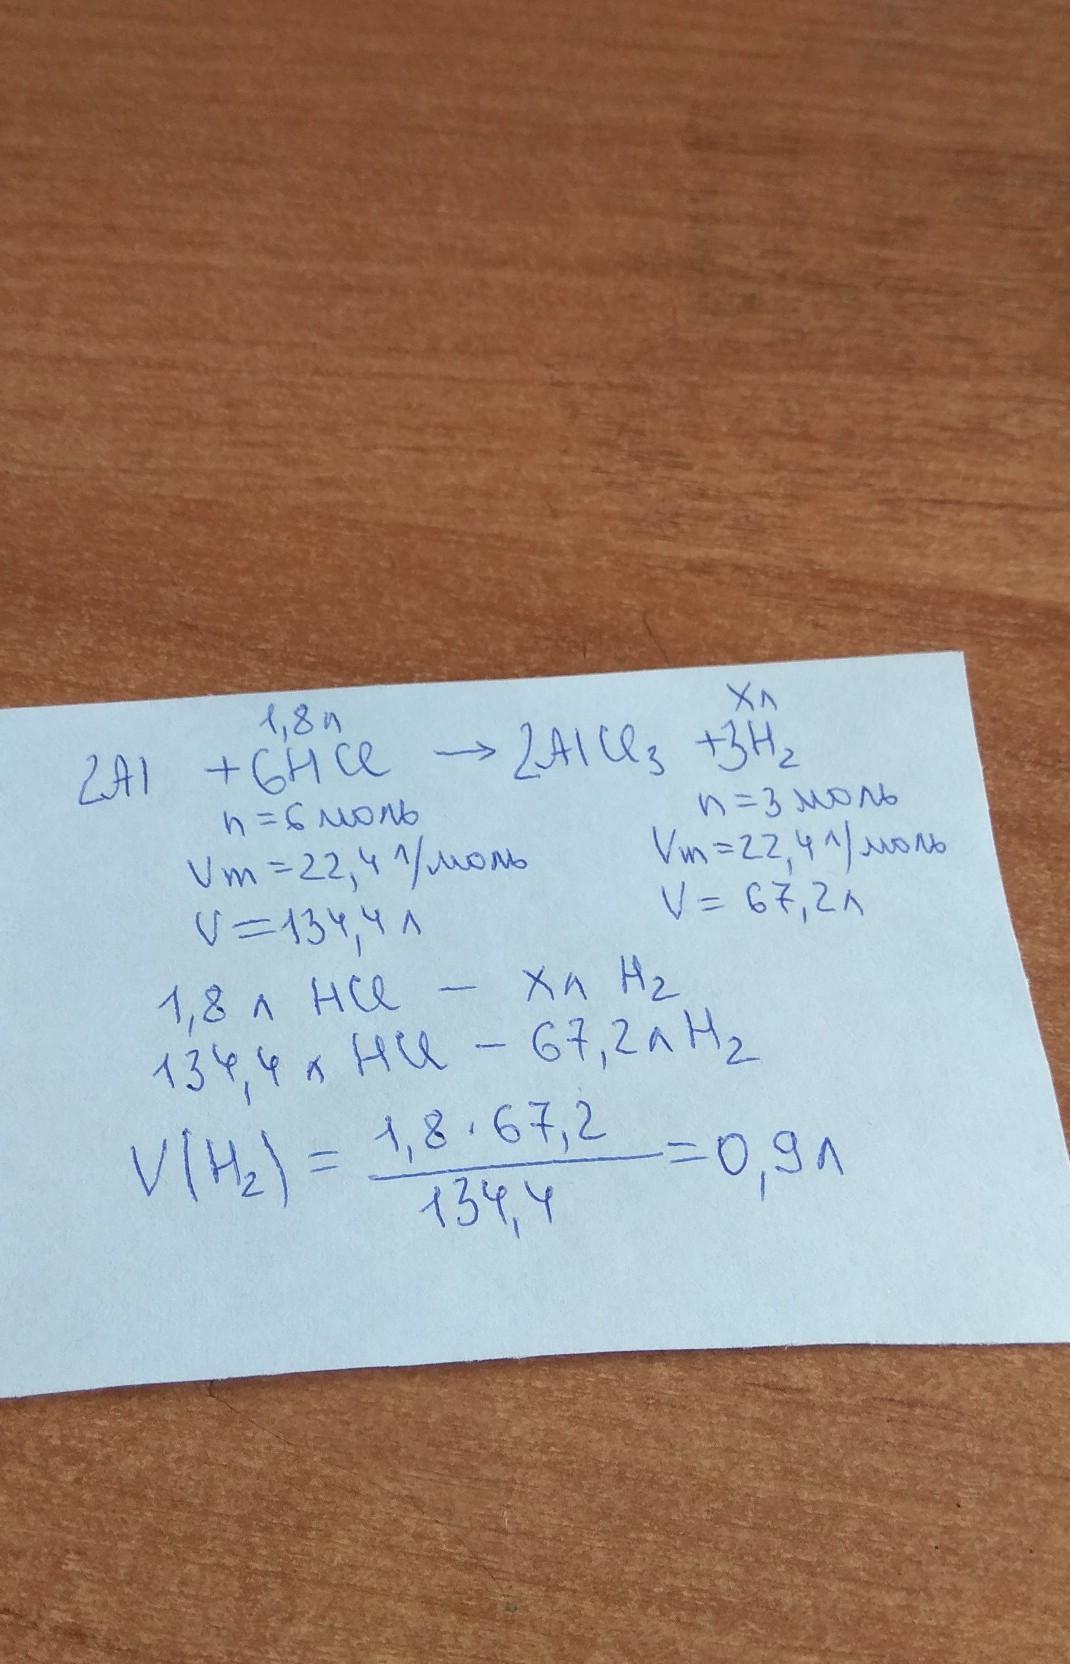 1,8л Xл
2Al +6HCl → 2AlCl₃ +3H₂
n = 6 моль n = 3 моль
Vm = 22,4 л/моль Vm = 22,4 л/моль
V = 134,4 л V = 67,2 л
1,8 л HCl – Xл H₂
134,4 л HCl – 67,2л H₂
V(H₂) = 1,8 · 67,2 / 134,4 = 0,9 л